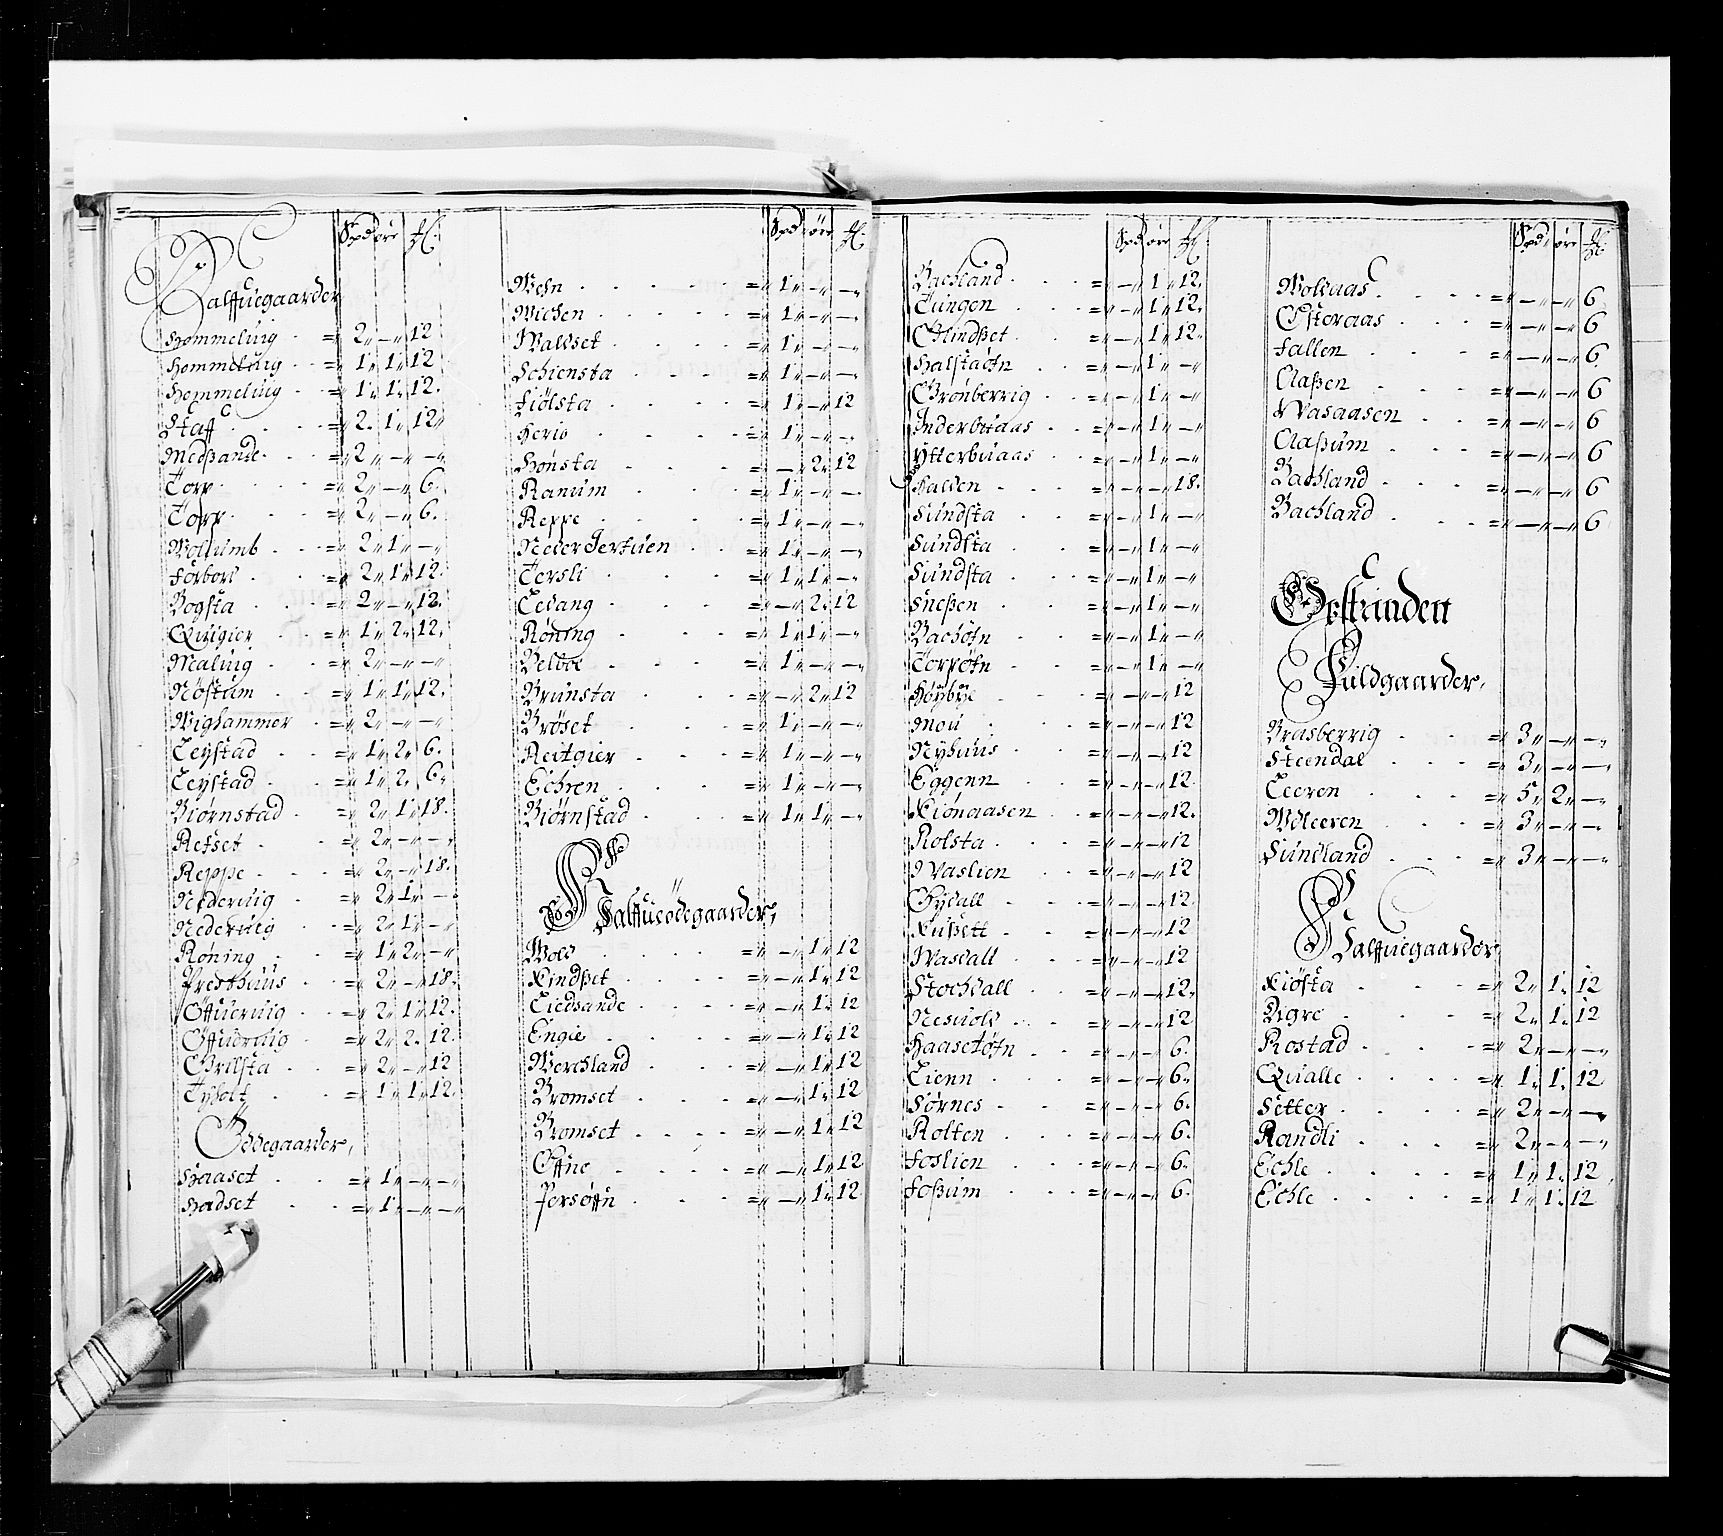 Spd øre
Halffuegaarder
Hommeluig = 2 „ — „ 12
Hommeluig = 1 „ 1 „ 12
Hommeluig = 1 „ 1 „ 12.
Staff = 2. 1 „ 12 „
Medsande = 2 „ — „ — „
Torp = 2 „ — „ 6.
Torp = 2 „ — „ 6.
Wollumb = 2 „ 1 „ — „
Forbord = 2 „ 1 „ 12.
Bogsta = 2 „ — „ 12.
Quigier = 1 „ 2 „ 12.
Maluig = 2 „ — „ — „
Nostum = 1 „ 1 „ 12.
Wighammer = 2 „ — „ — „
Leystad = 1 „ 2 „ 6.
Leystad = 1 „ 2. 6 „
Biørnstad = 2 „ 1 „ 18.
Refset = 2 „ — „ — „
Reppe = 2 „ — „ 18.
Nederuig = 2 „ 1 „ —
Nederuig = 2 „ 1 „ — „
Røning = 1 „ 2 „ — „
Presthuus = 2 „ — „ 18.
Offueruig = 2 „ 1 „ 12.
Offudruig = 2 „ 2. 12.
Grillsta = 2 „ — „ 12
Tyholt = 1 „ 1 „ 12.
Ødegaarder,
Haaset = 1 „ — „ — „
Hadset = 1 „ — „ — „
Spd øre
Wehn = 1 „ — „ — „
Wichen = 1 „ — „ — „
Waldset = 1 „ — „ — „
Schiensta = 1 „ — „ — „
Fiølsta = 1 „ — „ 12
Herio = 1 „ — „ — „
Hønsta = — „ 2 „ 12
Ranum = 1 „ — „ — „
Reppe = 1 „ — „ — „
Neder Jertuen = 1 „ — „ — „
Tersli = 1 „ 1 „ — „
Ledang = — „ 2. 12
Røning = 1 „ 1 „ — „
Belboe = 1 „ — „ — „
Brunsta = — „ 2 „ 12
Brøset = 1 „ — „ — „
Reitgier = 1 „ — „ — „
Echren = 1 „ — „ — „
Biørnstad = 1 „ 1 „ — „
Halffueødegaarder,
Wold = — „ 1 „ 12
Kindset = — „ 1 „ 12
Liedsande = — „ 1 „ 12
Engie = — „ 1 „ 12
Werchland = — „ 1 „ 12
Bromset = — „ 1 „ 12
Bromset = — „ 1 „ 12
Offne = — „ 1 „ 12
Persøffn = — „ 1 „ 12
Spd øre
Bachland = — „ 1 „ 12.
Tungen = — „ 1 „ 12.
Glindset = — „ 1 „ 12.
Halstadtn = — „ 1 „ — „
Grønberrig = — „ 1 „ — „
Inderbuaas = — „ 1 „ — „
Ytterbuaas = — „ 1 „ — „
Halden = — „ — „ 18.
Sundsta = — „ 1 „ — „
Sundsta = — „ 1 „ — „
Sundsta = — „ 1 „ — „
Snesen = — „ 1 „ — „
Bachøtn = — „ 1 „ — „
Torpøtn = — „ 1 „ — „
Høybye = — „ — „ 12
Mou = — „ — „ 12
Nyhuus = — „ — „ 12
Eggenn = — „ — „ 12.
Kiønaasen = — „ — „ 12.
Rolsta = — „ — „ 12
Waslien = — „ — „ 12
Gydall = — „ — „ 12.
Kusett = — „ — „ 12
Wasdall = — „ — „ 12
Stochdall = — „ — „ 12.
Nesuold = — „ — „ 12
Haasetøtn = — „ — „ 6.
Lienn = — „ — „ 6.
Sørnes = — „ — „ 6.
Rolten = — „ — „ 6.
Foslien = — „ — „ 6.
Fossum = — „ — „ 6.
Spd øre
Woldaas = — „ — „ 6
Osteraas = — „ — „ 6
Fallen = — „ — „ 6.
Aasen = — „ — „ 6
Wasaasen = — „ — „ 6
Aasum = — „ — „ 6
Bachland = — „ — „ 6
Bachland = — „ — „ 6
Fuldgaarder,
Brasberrig = 3 „ — „ — „
Steendal = 3 „ — „ — „
Leeren = 5 „ 2 „ — „
Wdleeren = 3 „ — „ — „
Sundland = 3 „ — „ — „
Halffuegaarder
Kiøsta = 2 „ 1 „ 12
Agre = 2 „ 1 „ 12
Rostad = 2 „ — „ — „
Qualle = 1 „ 1 „ 12
Setter = 2 „ — „ — „
Randli = 2 „ — „ — „
Echle = 1 „ 1 „ 12
Echle = 1 „ 1 „ 12